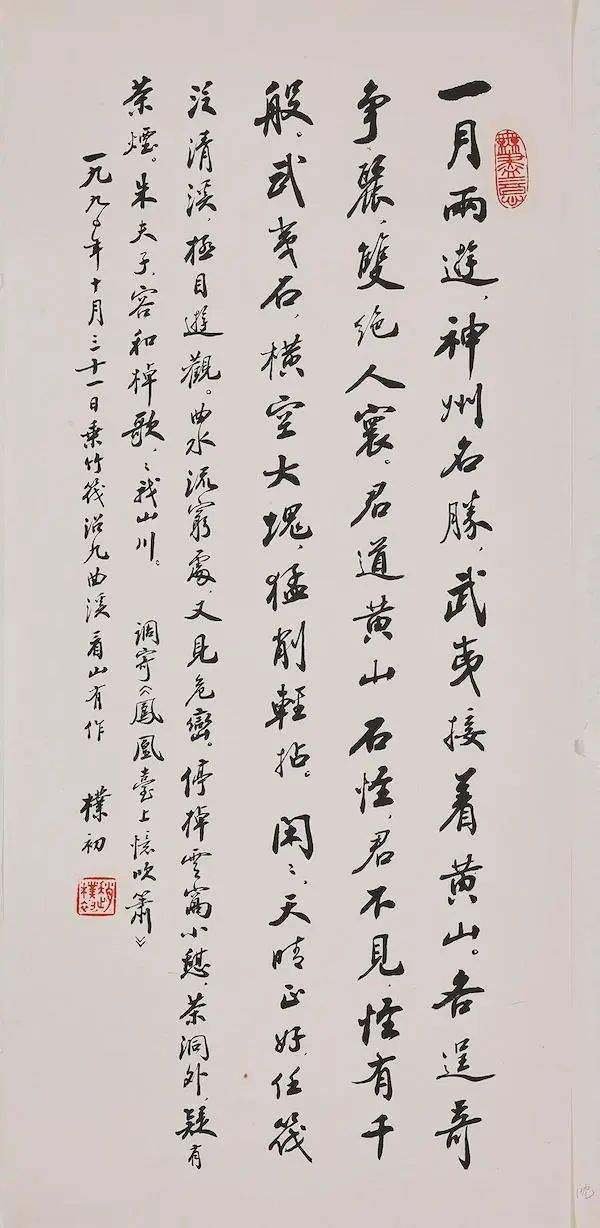 一月兩遊，神州名勝，武夷接着黄山。各逞奇
争麗，雙绝人寰。君道黄山石怪，君不見，怪有千
般。武夷石，橫空大塊，猛削輕拈。閑〻，天晴正好，任筏
泛清溪，極目遊觀。曲水流窮處，又見危巒。停棹雲窩小憩，茶洞外，疑有
茶煙。朱夫子，容和棹歌，〻我山川。 調寄《鳳凰臺上憶吹箫》
一九九〇年十月三十一日乘竹筏沿九曲溪看山有作 樸初
無盡意
趙樸初